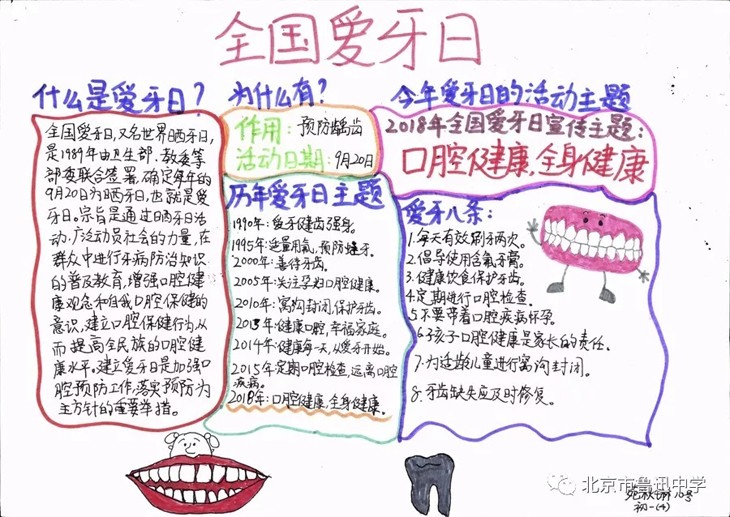 全国爱牙日
什么是爱牙日？
全国爱牙日,又名世界晒牙日,
是1989年由卫生部、教委等
部委联合签署,确定每年的
9月20日为晒牙日,也就是爱
牙日。宗旨是通过晒牙日活
动,广泛动员社会的力量,在
群众中进行牙病防治知识
的普及教育,增强口腔健
康观念和自我口腔保健的
意识,建立口腔保健行为从
而提高全民族的口腔健
康水平。建立爱牙日是加强口
腔预防工作,落实预防为
主方针的重要举措。
为什么有？
作用：预防龋齿
活动日期：9月20日
历年爱牙日主题
1990年：爱牙健齿强身。
1995年：适量用氟,预防蛀牙。
2000年：善待牙齿。
2005年：关注孕妇口腔健康。
2010年：窝沟封闭,保护牙齿。
2013年：健康口腔,幸福家庭。
2014年：健康每一天,从爱牙开始。
2015年：定期口腔检查,远离口腔
疾病。
2018年：口腔健康,全身健康。
今年爱牙日的活动主题
2018年全国爱牙日宣传主题：
口腔健康,全身健康
爱牙八条：
1.每天有效刷牙两次。
2.倡导使用含氟牙膏。
3.健康饮食保护牙齿。
4.定期进行口腔检查。
5.不要带着口腔疾病怀孕。
6.孩子口腔健康是家长的责任。
7.为适龄儿童进行窝沟封闭。
8.牙齿缺失应及时修复。
北京市鲁迅中学
10号
初一(4)